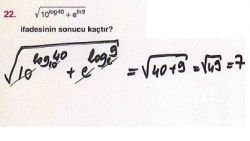 22. √(10^log40 + e^ln9)
ifadesinin sonucu kaçtır?
√(10^log₁₀40 + e^logₑ9) = √(40+9) = √49 = 7